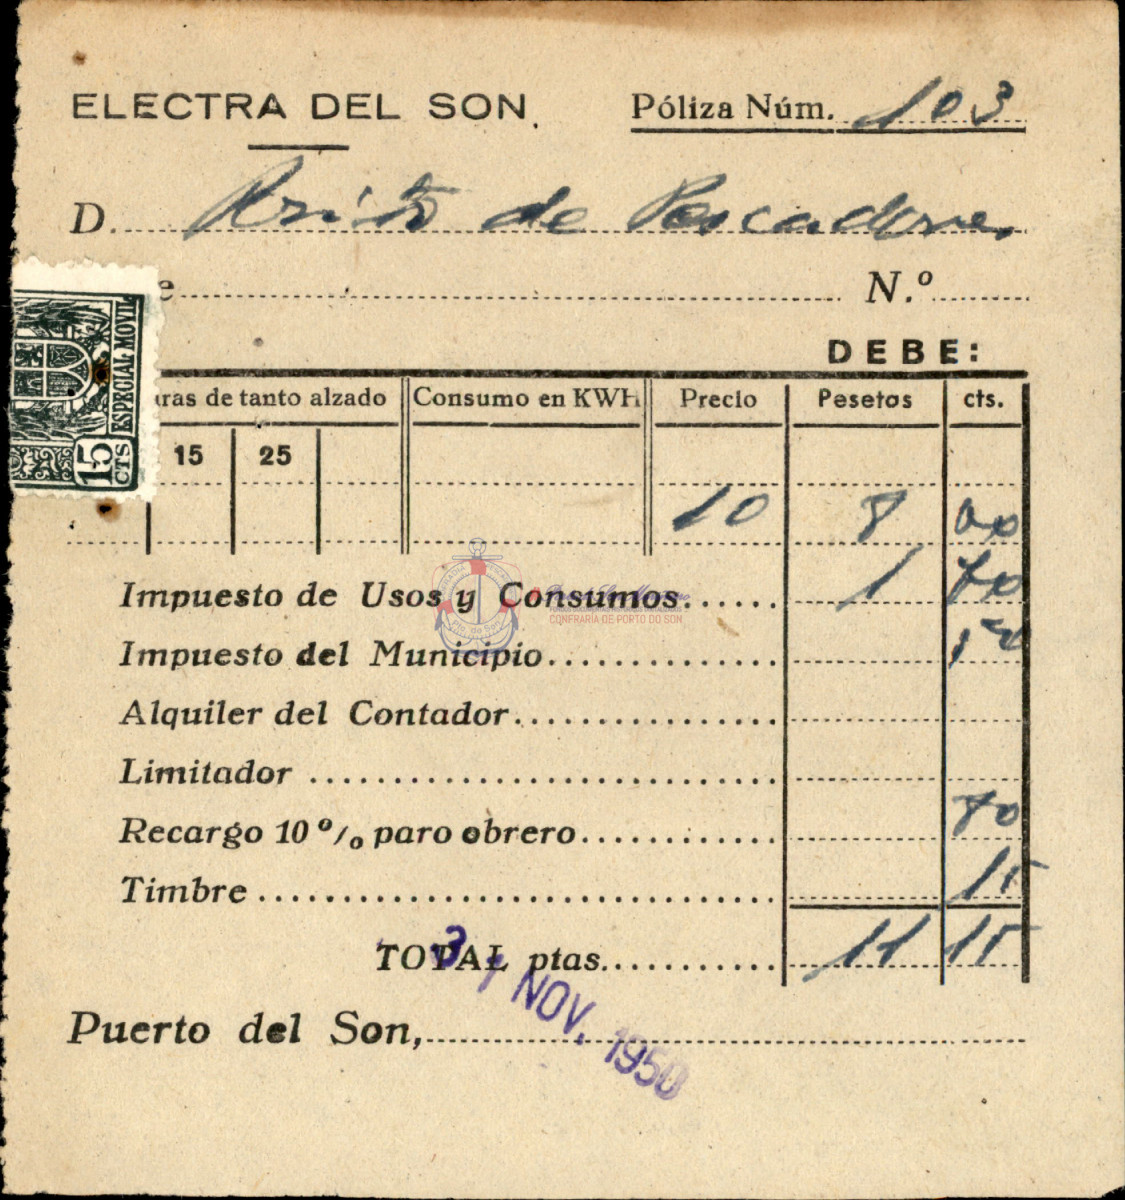 ELECTRA DEL SON.
Póliza Núm. 103
D. de Pescadores
e N.º
DEBE:
ras de tanto alzado Consumo en KWH Precio Pesetas cts.
15 25
10 8 00
Impuesto de Usos y Consumos...... 1
Impuesto del Municipio..............
Alquiler del Contador................
Limitador .............................
Recargo 10 % paro obrero............ 80
Timbre ................................. 15
TOTAL ptas........... 11 15
Puerto del Son,
NOV. 1950
ESPECIAL MOVIL
15 CTS
Pto. do Son
CONFRARÍA DE PORTO DO SON